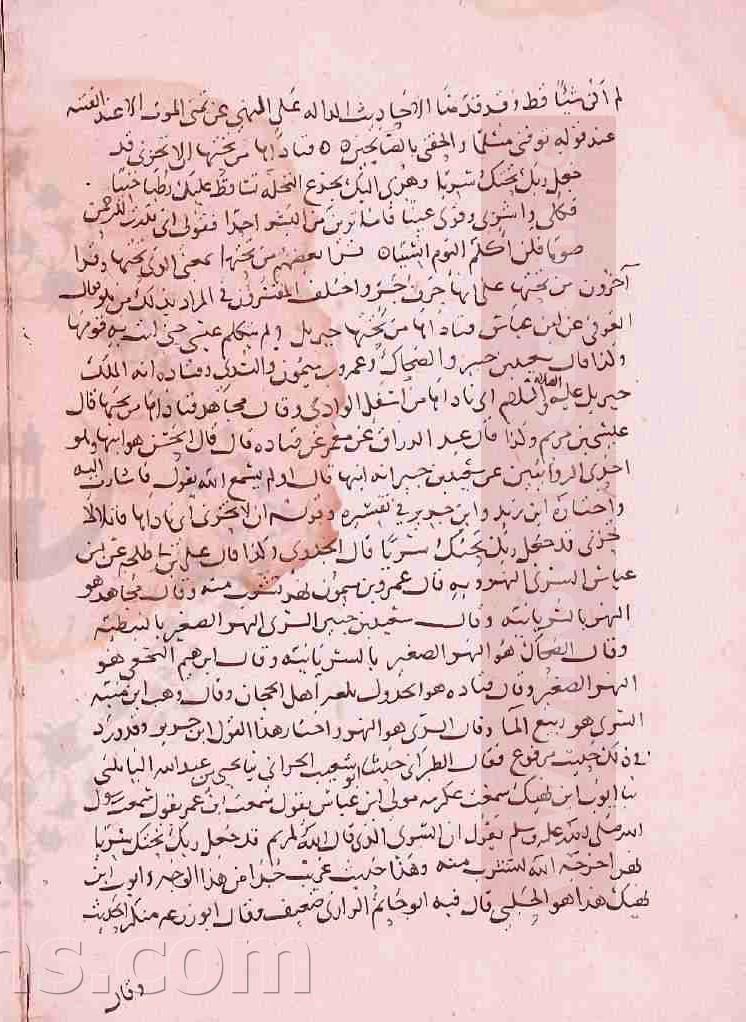 لم أك شيئا قط وقد قدمنا الاحاديث الداله على النهي عن تمني الموت الا عند الفتنه
عند قوله توفني مسلما والحقني بالصالحين ٥ ٥ فناداها من تحتها الا تحزني قد
جعل ربك تحتك سريا وهزي اليك بجذع النخله تساقط عليك رطبا جنيا
فكلي واشربي وقري عينا فاما ترين من البشر احدا فقولي اني نذرت للرحمن
صوما فلن اكلم اليوم انسيا ٥ قرا بعضهم من تحتها بمعنى الذي تحتها وقرا
آخرون من تحتها على انها حرف جر واختلف المفسرون في المراد بذلك من هو فقال
العوفي عن ابن عباس فناداها من تحتها جبريل ولم يتكلم عيسى حتى اتت به قومها
وكذا قال سعيد بن جبير والضحاك وعمرو بن ميمون والسدي وقتاده انه الملك
جبريل عليه الصلاة والسلام اي ناداها من اسفل الوادي وقال مجاهد فناداها من تحتها قال
عيسى بن مريم وكذا قال عبد الرزاق عن معمر عن قتاده قال قال الحسن هو ابنها وهو
احدى الروايتين عن سعيد بن جبير انه ابنها قال اولم تسمع الله يقول فاشارت اليه
واختاره ابن زيد وابن جرير في تفسيره وقوله ان لا تحزني اي ناداها قائلا لا
تحزني قد جعل ربك تحتك سريا قال الجدول وكذا قال علي بن ابي طلحه عن ابن
عباس السري النهر وبه قال عمرو بن ميمون نهر تشرب منه وقال مجاهد هو
النهر بالسريانيه وقال سعيد بن جبير السري النهر الصغير بالنبطيه
وقال الضحاك هو النهر الصغير بالسريانيه وقال ابرهيم النخعي هو
النهر الصغير وقال قتاده هو الجدول بلغه اهل الحجاز وقال وهب ابن منبه
السري هو ربيع الما وقال السدي هو النهر واختار هذا القول ابن جرير وقد ورد
في ذلك حديث مرفوع فقال الطبراني حدثنا ابو شعيب الحراني نا يحيى بن عبد الله البابلتي
نا ايوب ابن نهيك سمعت عكرمه مولى ابن عباس يقول سمعت ابن عمر يقول سمعت رسول
الله صلى الله عليه وسلم يقول ان السري الذي قال الله لمريم قد جعل ربك تحتك سريا
نهر اخرجه الله لتشرب منه وهذا حديث غريب جدا من هذا الوجه وايوب ابن
نهيك هذا هو الحلبي قال فيه ابو حاتم الرازي ضعيف وقال ابو زرعه منكر الحديث
وقال
ns.com